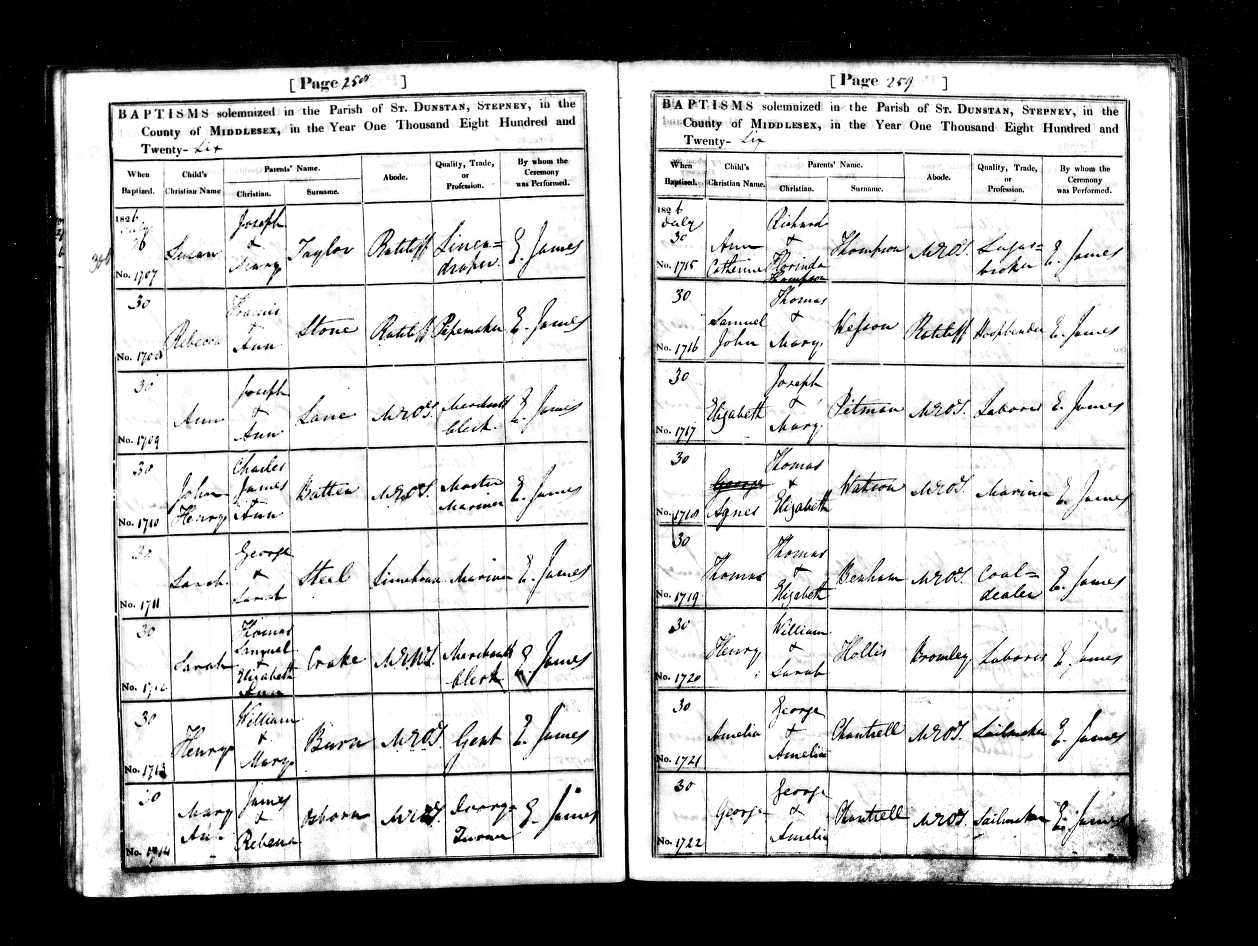 [ Page 258 ]
BAPTISMS solemnized in the Parish of ST. DUNSTAN, STEPNEY, in the
County of MIDDLESEX, in the Year One Thousand Eight Hundred and
Twenty- Six
When Baptized. Child's Christian Name Parents' Name. Christian. Surname. Abode. Quality, Trade, or Profession. By whom the Ceremony was Performed.
1826 July
Susan Joseph & Mary Taylor Ratcliff Linen=draper E. James
No. 1707
30
Rebecca Francis & Ann Stone Ratcliff Pipemaker E. James
No. 1708
30
Ann Joseph & Ann Lane M.R.O.T. Merchants Clerk E. James
No. 1709
30
John Henry Charles James & Ann Batten M.R.O.T. Master Mariner E. James
No. 1710
30
Sarah George & Sarah Steel Limehouse Mariner E. James
No. 1711
30
Sarah Thomas Samuel & Elizabeth Ann Crake Merchants Clerk E. James
No. 1712
30
Henry William & Mary Burn M.R.O.T. Gent E. James
No. 1713
30
Mary Ann James & Rebecca Osborn M.R.O.T. Ivory=Turner E. James
No. 1714
[ Page 259 ]
BAPTISMS solemnized in the Parish of ST. DUNSTAN, STEPNEY, in the
County of MIDDLESEX, in the Year One Thousand Eight Hundred and
Twenty- Six
When Baptized. Child's Christian Name. Parents' Name. Christian. Surname. Abode. Quality, Trade, or Profession. By whom the Ceremony was Performed.
1826 July
30
Ann Catherine Richard & Florinda Thompson Thompson M.R.O.T. Sugar=broker E. James
No. 1715
30
Samuel John Thomas & Mary Ratcliff Hoopbender E. James
No. 1716
30
Elizabeth Joseph & Mary Pitman M.R.O.T. Laborer E. James
No. 1717
30
George Agnes Thomas & Elizabeth Watson M.R.O.T. Mariner E. James
No. 1718
30
Thomas Thomas & Elizabeth Benham M.R.O.T. Coal=dealer E. James
No. 1719
30
Henry William & Sarah Hollis Bromley Laborer E. James
No. 1720
30
Amelia George & Amelia Chantrell M.R.O.T. Sailmaker E. James
No. 1721
30
George George & Amelia Chantrell M.R.O.T. Sailmaker E. James
No. 1722